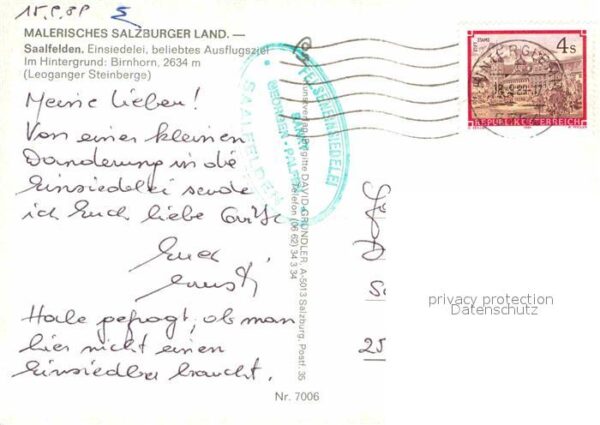 15.9.89
MALERISCHES SALZBURGER LAND. —
Saalfelden. Einsiedelei, beliebtes Ausflugsziel
Im Hintergrund: Birnhorn, 2634 m
(Leoganger Steinberge)
Meine Lieben!
Von einer kleinen
Wanderung in die
Einsiedelei sende
ich Euch liebe Grüße
Euer
Ernst
Habe gefragt, ob man
hier nicht einen
Einsiedler braucht.
FELSENEINSIEDELEI
SANKT
GEORGEN-PALFEN
SAALFELDEN
Kunstverlag Brigitte DAVID-GRÜNDLER, A-5013 Salzburg, Postf. 35
Telefon (06 62) 34 3 34
Nr. 7006
4 S
STIFT STAMS
REPUBLIK ÖSTERREICH
25
privacy protection
Datenschutz